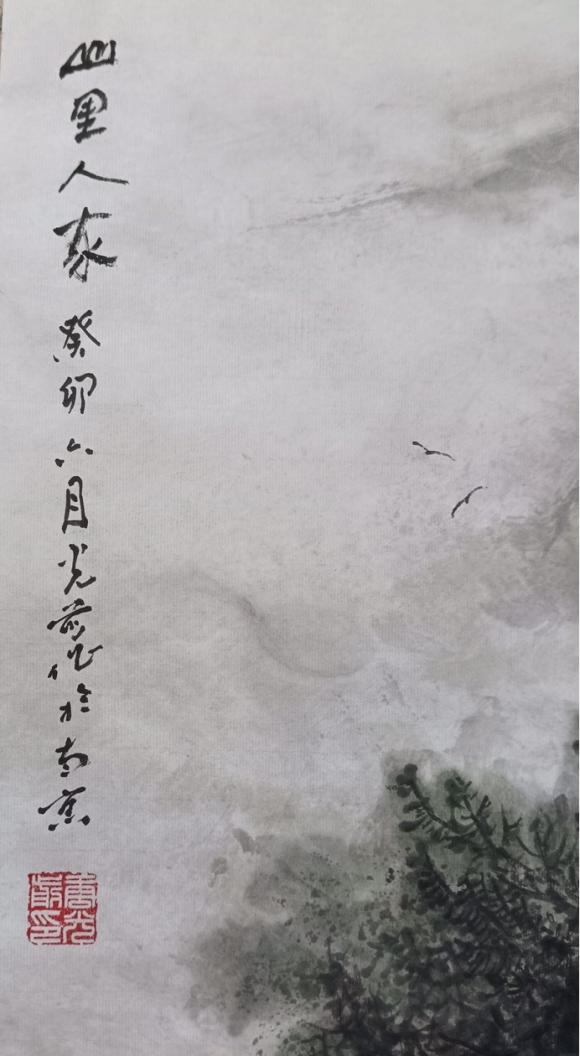 山里人家 癸卯六月光前作於南京